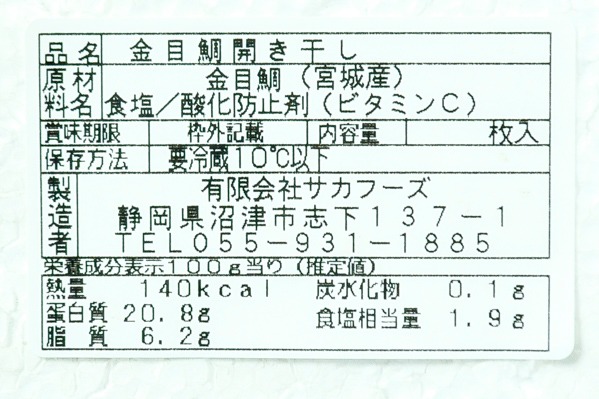 品名 金目鯛開き干し
原材 金目鯛（宮城産）
料名 食塩／酸化防止剤（ビタミンC）
賞味期限 枠外記載 内容量 枚入
保存方法 要冷蔵10℃以下
製造者 有限会社サカフーズ
静岡県沼津市志下137-1
TEL055-931-1885
栄養成分表示100g当り（推定値）
熱量 140kcal 炭水化物 0.1g
蛋白質 20.8g 食塩相当量 1.9g
脂質 6.2g